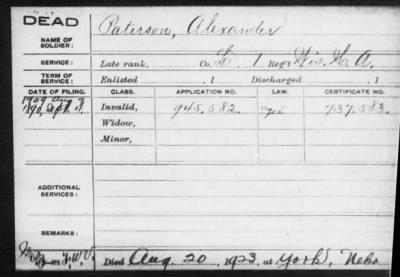 DEAD
NAME OF SOLDIER: Paterson, Alexander
SERVICE: Late rank, Co. L. 1 Reg't Wis. H. A.
TERM OF SERVICE: Enlisted , 1 Discharged , 1
DATE OF FILING. CLASS. APPLICATION NO. LAW. CERTIFICATE NO.
Invalid, 945,582 737,583.
Widow,
Minor,
ADDITIONAL SERVICES:
REMARKS:
Died Aug. 20, 1923, at York, Nebr